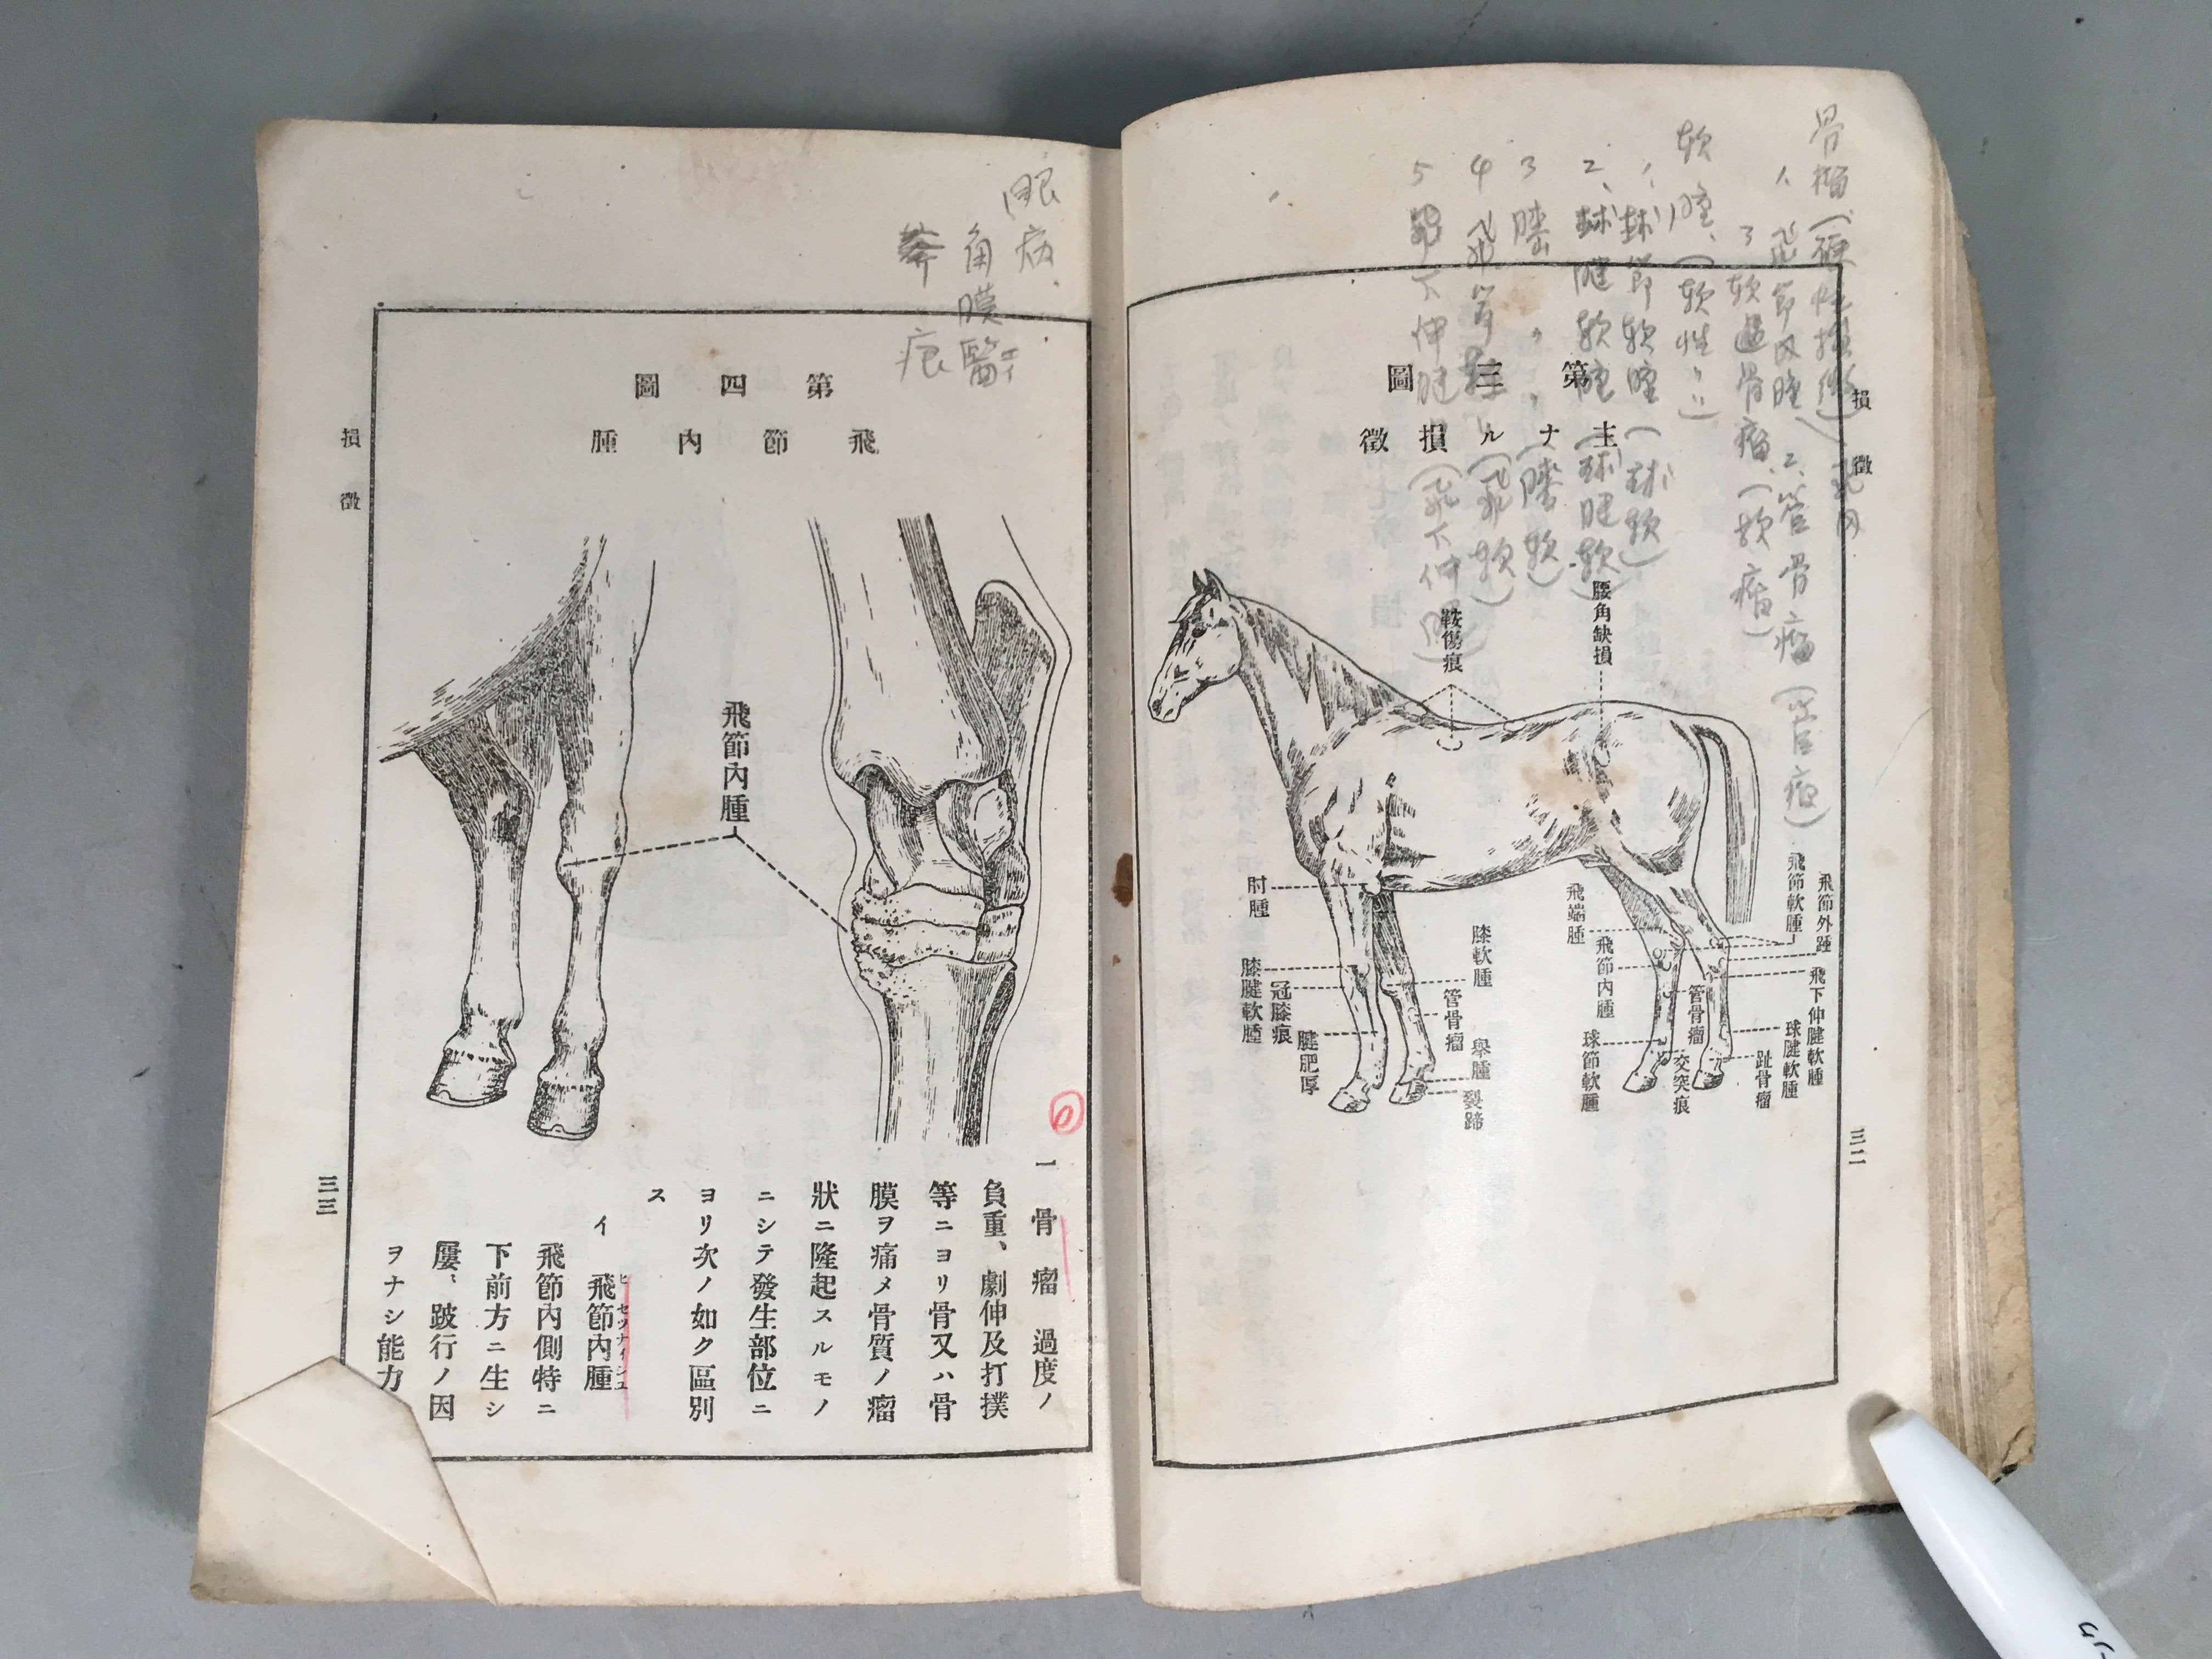 損徵
三二
第三圖
主ナル損徵
腰角缺損
鞍傷痕
飛節外踵
飛節軟腫
飛下伸腱軟腫
球腱軟腫
趾骨瘤
管骨瘤
交突痕
飛節內腫
飛端腫
球節軟腫
膝軟腫
擧腫
裂蹄
管骨瘤
腱肥厚
冠膝痕
肘腫
膝腱軟腫
骨瘤(硬性損徵)
1、飛節內腫
2、管骨瘤(管瘤)
3、軟過骨瘤、(軟瘤)
軟腫、(軟性〃)
1、球節軟腫(球軟)
2、球腱軟腫(球腱軟)
3 膝〃〃(膝軟)
4 飛節軟〃(飛軟)
5 飛下伸腱〃(飛下伸
眼病
角膜翳エイ
痕
第四圖
飛節內腫
飛節內腫
一 骨瘤 過度ノ
負重、劇伸及打撲
等ニヨリ骨又ハ骨
膜ヲ痛メ骨質ノ瘤
狀ニ隆起スルモノ
ニシテ發生部位ニ
ヨリ次ノ如ク區別
ス
イ 飛節內腫
ヒセツナイシユ
飛節內側特ニ
下前方ニ生シ
屢〻跛行ノ因
ヲナシ能力
損徵
三三